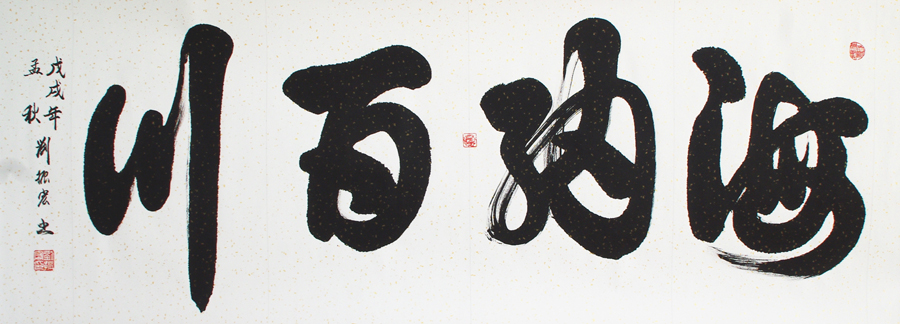 海纳百川
戊戌年
孟秋 刘振宏书